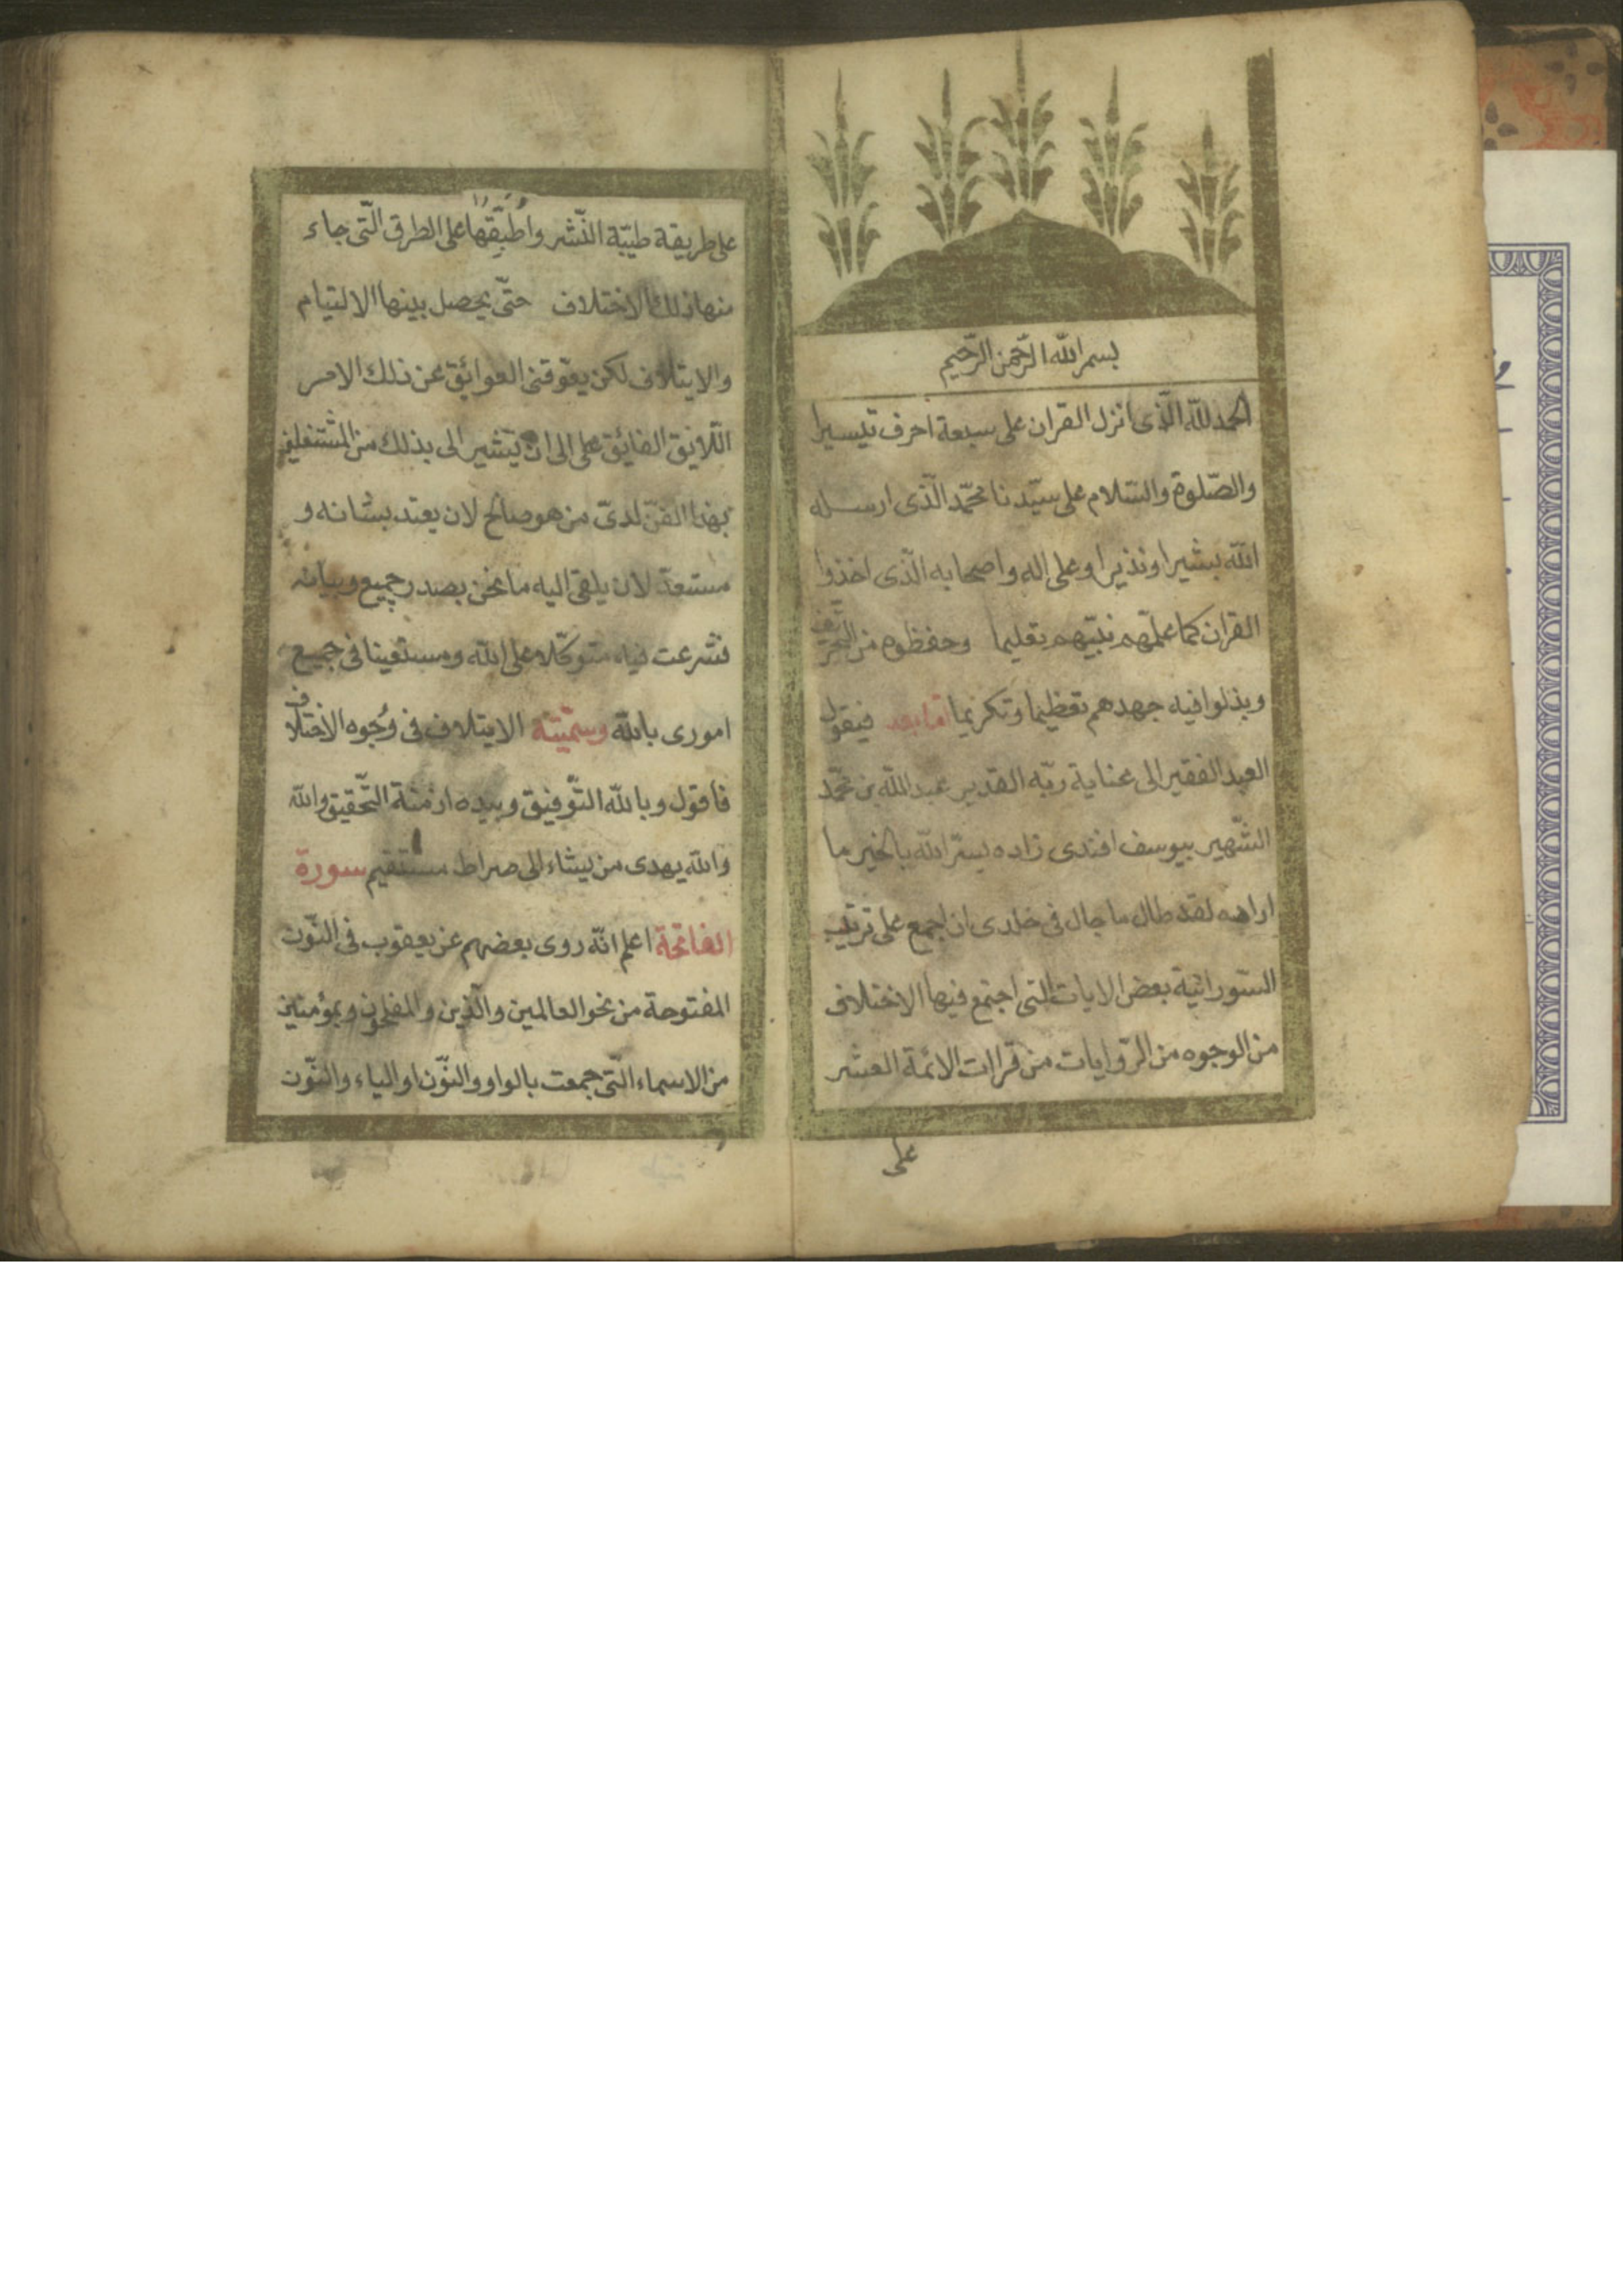 بسم الله الرّحمن الرّحيم
الحمد لله الّذى انزل القران على سبعة احرف تيسيرا
والصّلوة والسّلام على سيّدنا محمّد الّذى ارسله
الله بشيرا ونذيرا وعلى اله واصحابه الّذى اخذوا
القران كما علمّهم نبيّهم تعليما وحفظوه من التحريف
وبذلوا فيه جهدهم تعظيما وتكريما امّا بعد فيقول
العبد الفقير الى عناية ربّه القدير عبد الله بن محمّد
الشّهير بيوسف افندى زاده يسّر الله بالخير ما
اراده لقد طال ما جال فى خلدى ان اجمع على ترتيب
السّور انية بعض الايات التى اجتمع فيها الاختلاف
من الوجوه من الرّوايات من قراات الائمة العشر
على
على طريقة طيّبة النّشر واطبّقها على الطرق الّتى جاء
منها ذلك الاختلاف حتّى يحصل بينها الالتيام
والايتلاف لكن يعوّقنى العوائق عن ذلك الامر
اللّايق الفائق على الى ان يشير الى بذلك من المشتغلين
بهذا الفنّ لدىّ من هو صالح لان يعتد بشانه و
مستعدّ لان يلقى اليه ما نحن بصدر جميع وبيانه
فشرعت فيه متوكّلا على الله ومستعينا فى جميع
امورى بالله وسمّيته الايتلاف فى وُجوه الاختلاف
فاقول وبالله التّوفيق وبيده ازمّة التّحقيق والله
والله يهدى من يشاء الى صراط مستقيم سورة
الفاتحة اعلم انّه روى بعضهم عن يعقوب فى النّون
المفتوحة من نحو العالمين والّذين والمفلحون وبمؤمنين
من الاسماء الّتى جمعت بالواو والنّون او الياء والنّون